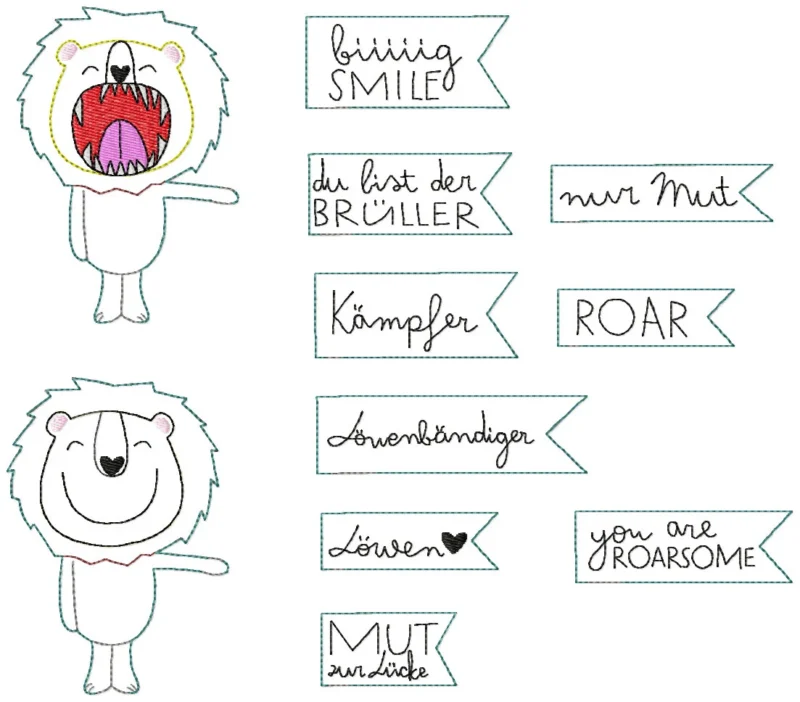 biiiiig
SMILE
du bist der
BRÜLLER
nur Mut
Kämpfer
ROAR
Löwenbändiger
Löwen
you are
ROARSOME
MUT
zur Lücke